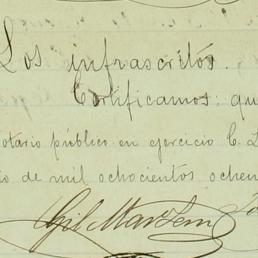 Los infrascritos.
Certificamos: qu
otario público en ejercicio C. L
io de mil ochocientos ochen
Gil